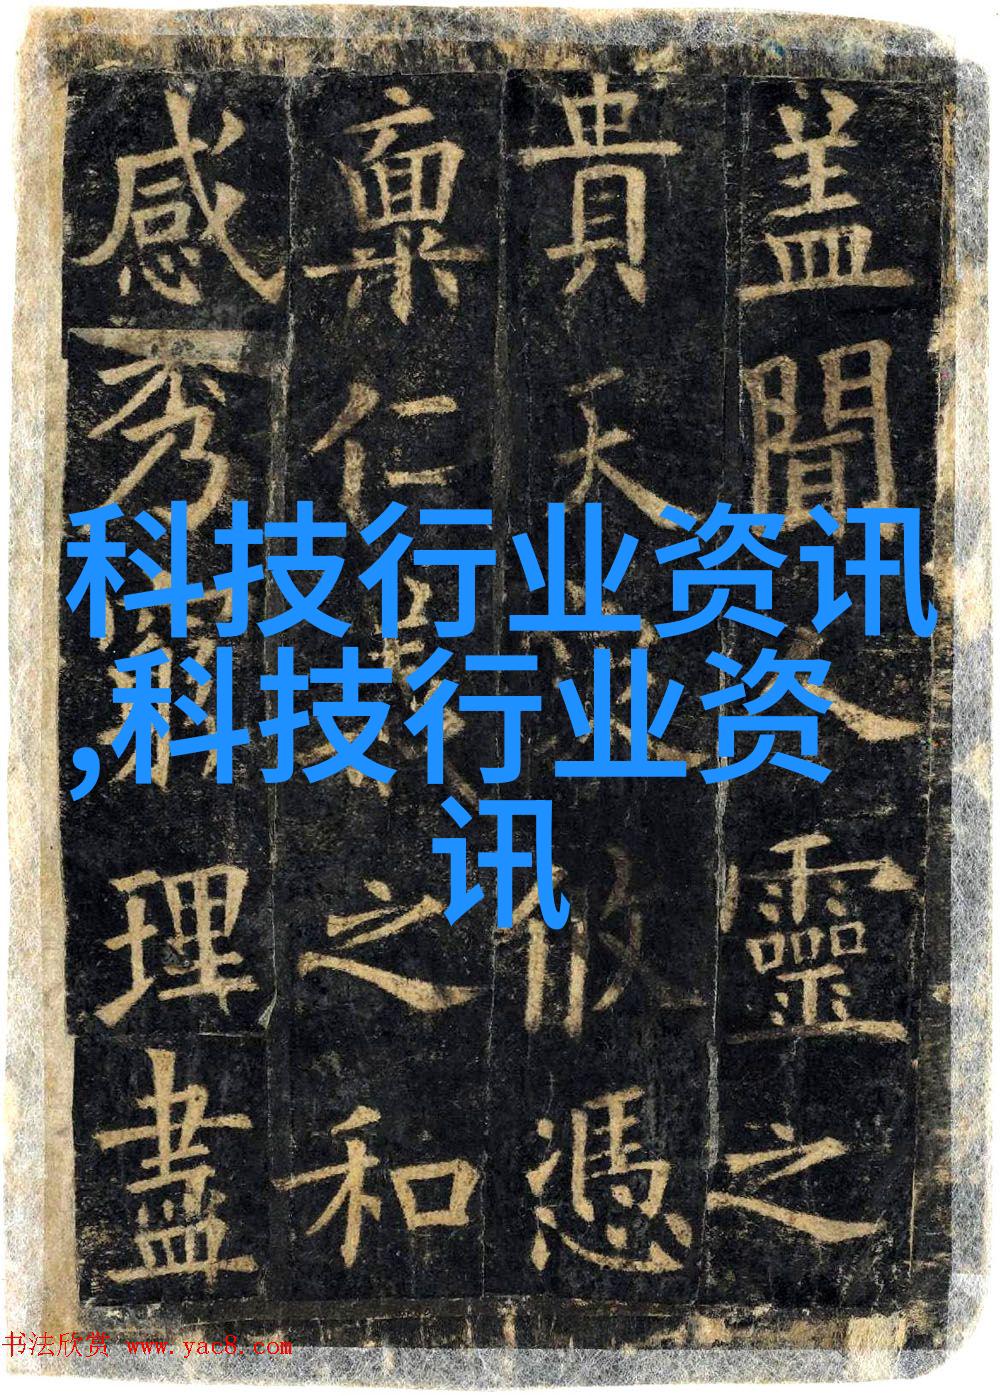 盖聞人靈之
貴天攸憑
稟仁之和
感秀窮理盡
科技行业资讯
,科技行业资
讯
书法欣赏 www.yac8.com